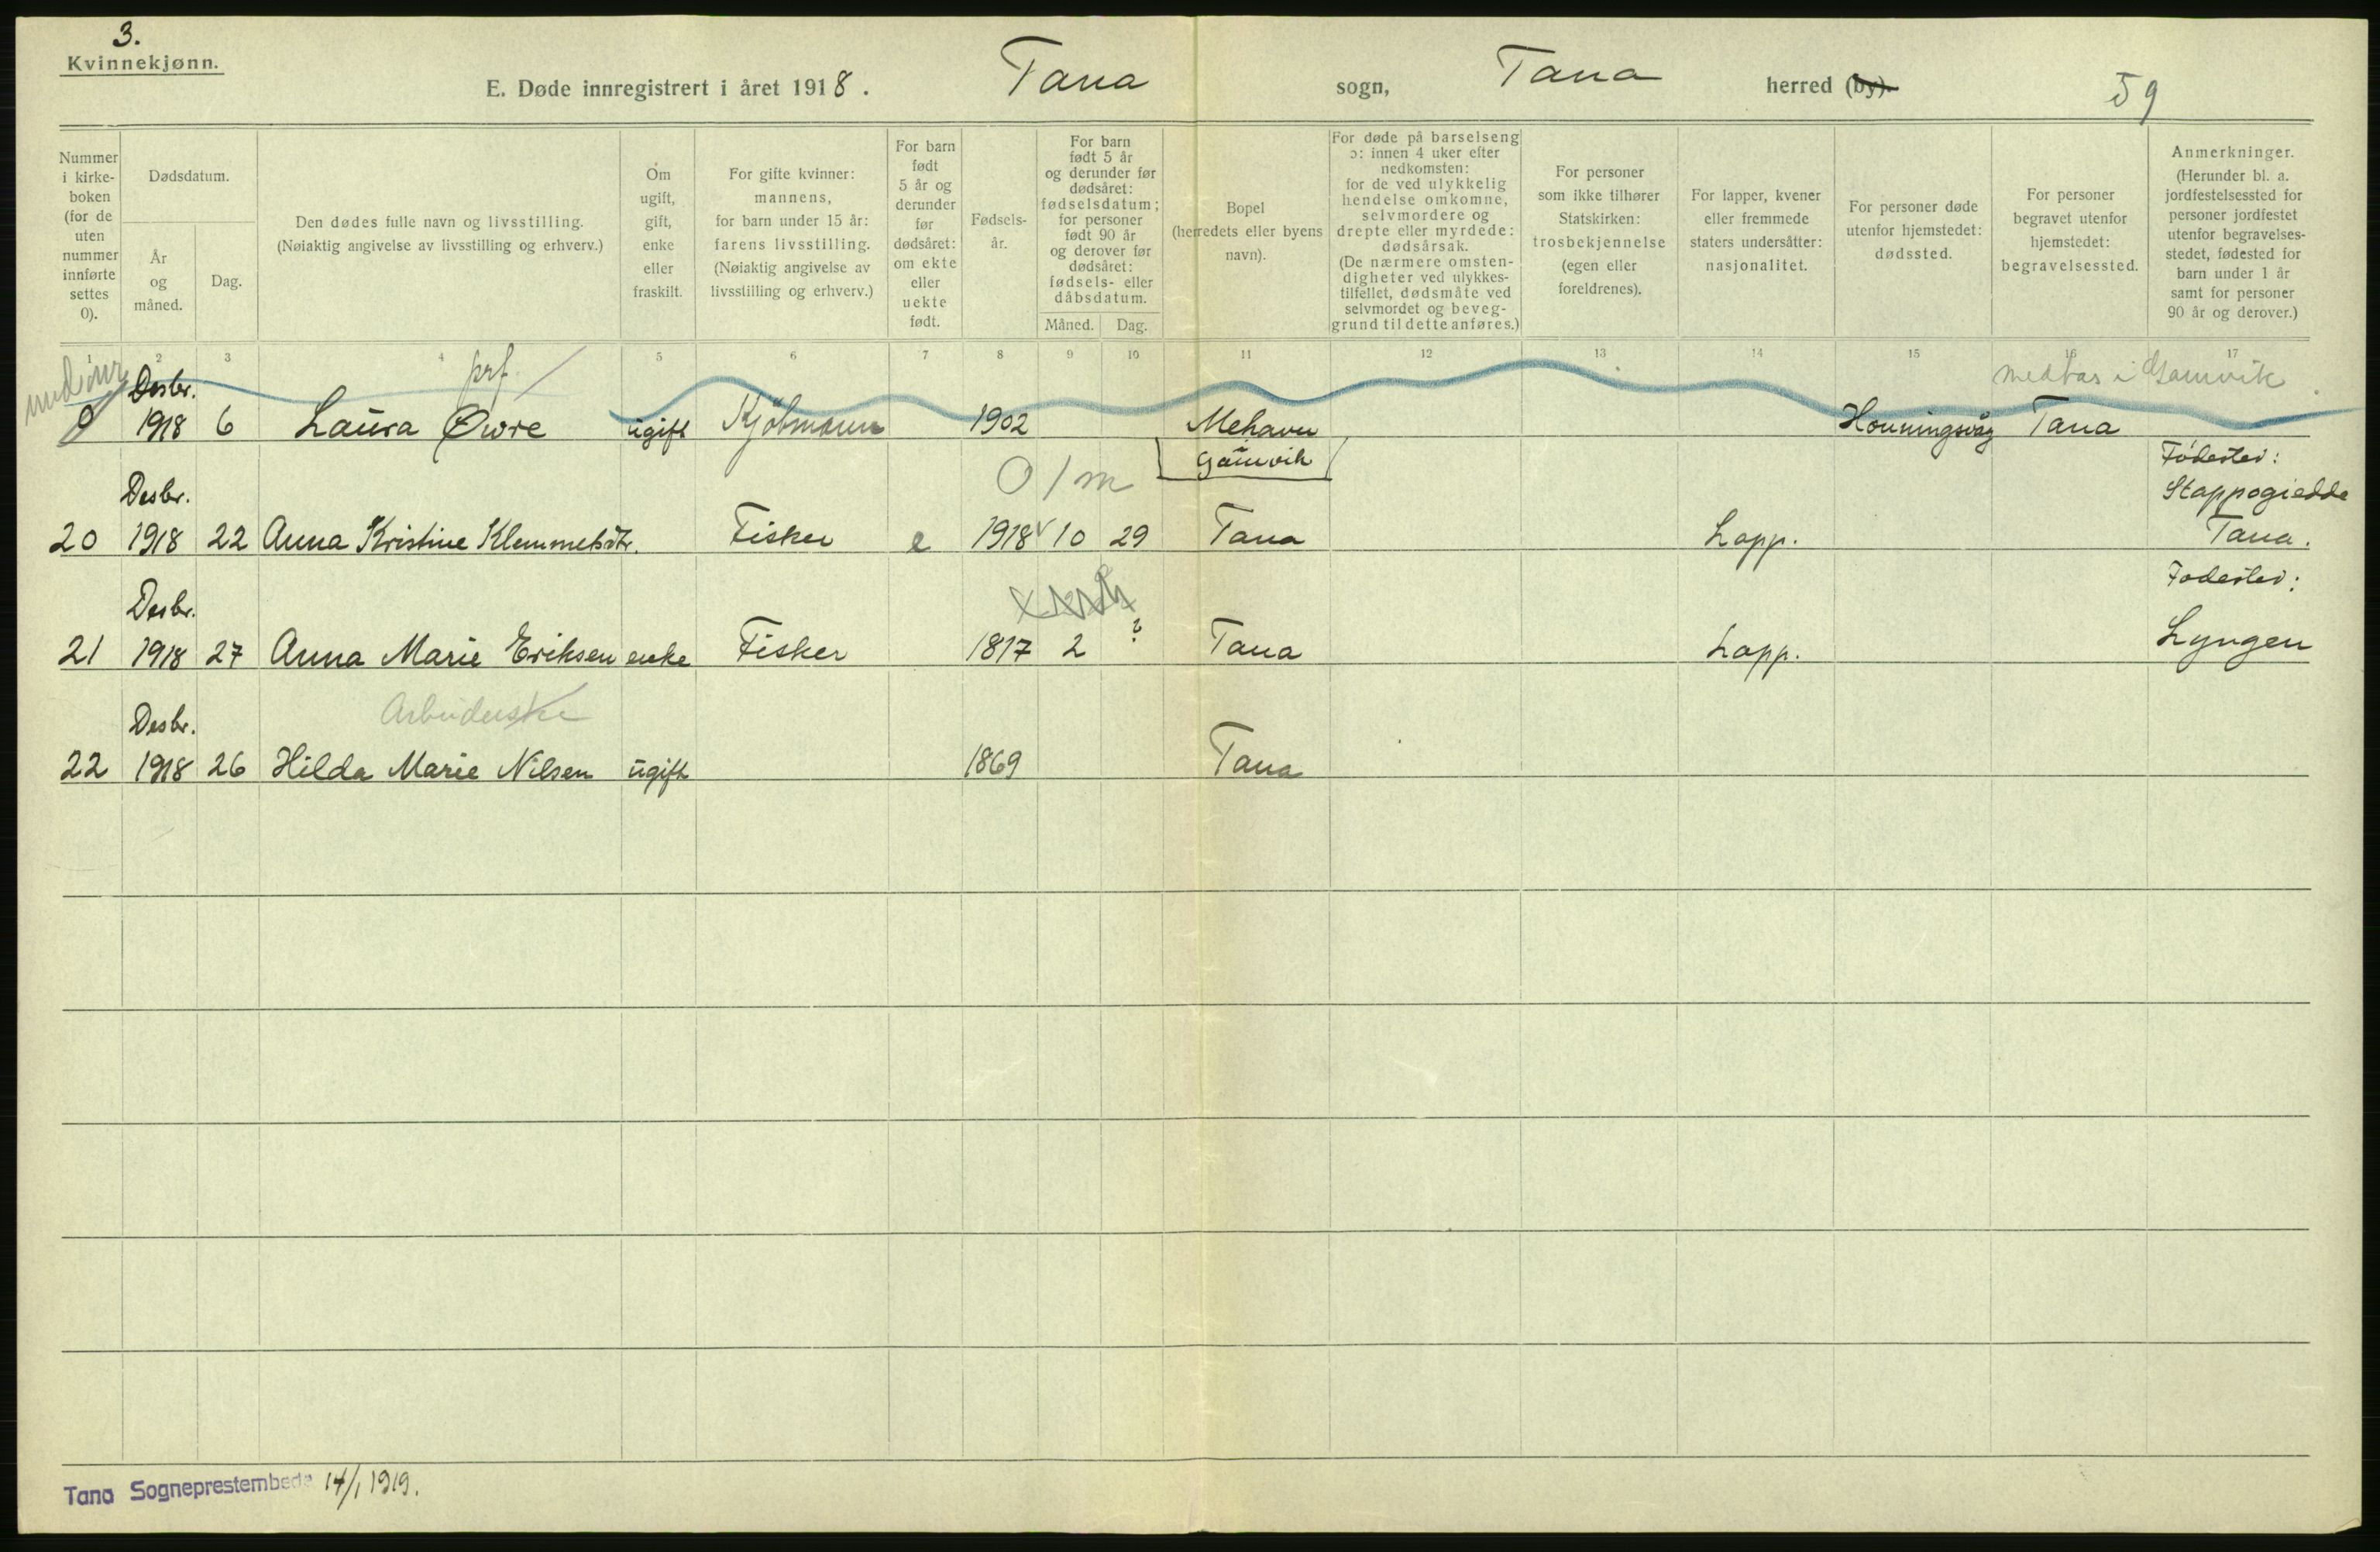 3.
Kvinnekjønn.
E. Døde innregistrert i året 1918. Tana sogn, Tana herred (by).
59
Nummer i kirke- boken (for de uten nummer innførte settes 0).
Dødsdatum.
År og måned.
Dag.
Den dødes fulle navn og livsstilling. (Nøiaktig angivelse av livsstilling og erhverv.)
Om ugift, gift, enke eller fraskilt.
For gifte kvinner: mannens, for barn under 15 år: farens livsstilling. (Nøiaktig angivelse av livsstilling og erhverv.)
For barn født 5 år og derunder før dødsåret: om ekte eller uekte født.
Fødsels- år.
For barn født 5 år og derunder før dødsåret: fødselsdatum; for personer født 90 år og derover før dødsåret: fødsels- eller dåbsdatum.
Måned. Dag.
Bopel (herredets eller byens navn).
For døde på barselseng ɔ: innen 4 uker efter nedkomsten: for de ved ulykkelig hendelse omkomne, selvmordere og drepte eller myrdede: dødsårsak. (De nærmere omsten- digheter ved ulykkes- tilfellet, dødsmåte ved selvmordet og beveg- grund til dette anføres.)
For personer som ikke tilhører Statskirken: trosbekjennelse (egen eller foreldrenes).
For lapper, kvener eller fremmede staters undersåtter: nasjonalitet.
For personer døde utenfor hjemstedet: dødssted.
For personer begravet utenfor hjemstedet: begravelsessted.
Anmerkninger. (Herunder bl. a. jordfestelsessted for personer jordfestet utenfor begravelses- stedet, fødested for barn under 1 år samt for personer 90 år og derover.)
1 2 3 4 5 6 7 8 9 10 11 12 13 14 15 16 17
prf.
medtas i Gamvik
Desbr.
0 1918 6 Laura Øwre ugift Kjöbmann 1902 Mehavn Honningsvåg Tana
Gamvik
Födested:
0/m
Desbr.
Stappogiedde
20 1918 22 Anna Kristine Klemmetsdtr. Fisker e 1918 10 29 Tana Lapp. Tana.
Födested:
Desbr.
21 1918 27 Anna Marie Eriksen enke Fisker 1817 2 ? Tana Lapp. Lyngen
Arbeiderske
Desbr.
22 1918 26 Hilda Marie Nilsen ugift 1869 Tana
Tana Sogneprestembede 14/1 1919.